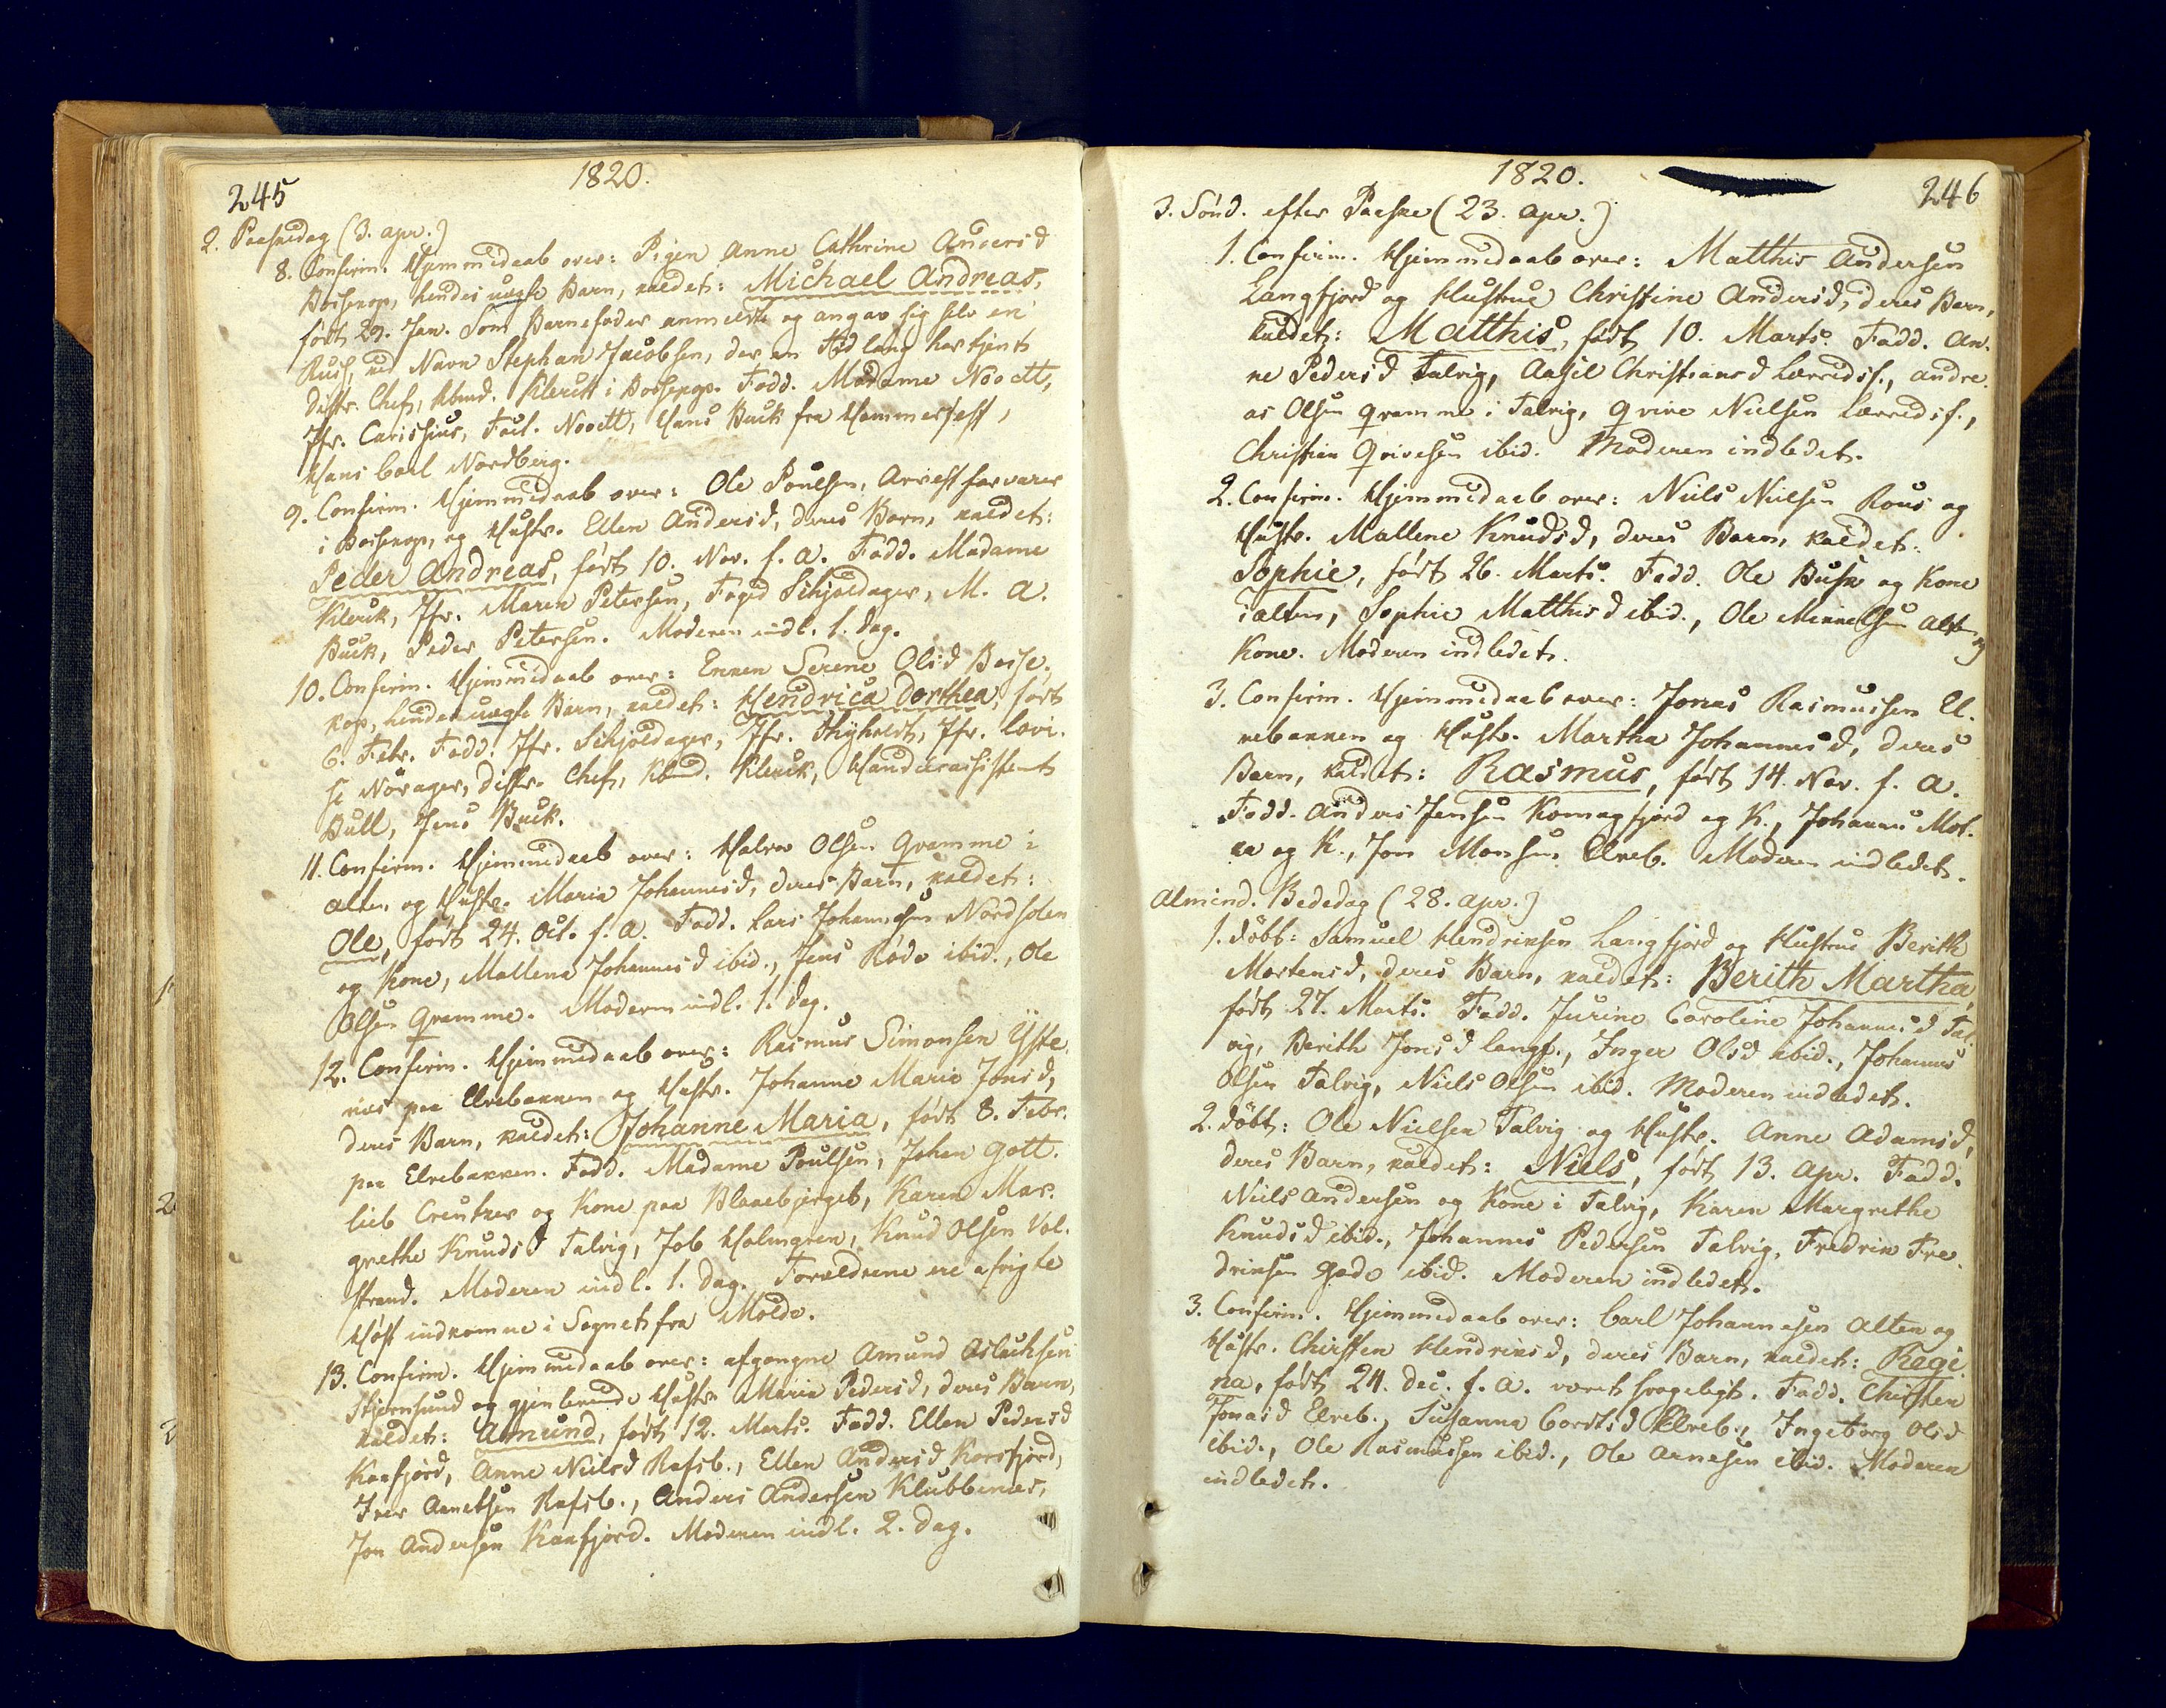 245
1820.
2. Paaskedag (3. apr.)
8. Confirm. Hjemmedaab over: Pigen Anne Cathrine Andersd
Bossekop, hendes uægte Barn, kaldet: Michael Andreas,
født 29. Jan. Som Barnefader anmeldte og angav sig selv en
Russ, ved Navn Stephan Jacobsen, der en Tid lang har tjent
Distr. Chef, Kbmd. Klerck i Bossekop. Fadd. Madame Noodt,
Jfr. Carisius, Fact. Noodt, Hans Buck fra Hammerfest,
Hans Carl Nordberg.
9. Confirm. Hjemmedaab over: Ole Poulsen, Arrestforvarer
i Bossekop, og Hustr. Ellen Andersd, deres Barn, kaldet:
Peder Andreas, født 10. Nov. f. a. Fadd. Madame
Klerck, Jfr. Maren Petersen, Foged Schjeldager, M. A.
Buck, Peder Petersen. Moderen indl. 1. Dag.
10. Confirm. Hjemmedaab over: Enken Serene Olsd Bosse-
kop, hendes uægte Barn, kaldet: Hendrica Dorthea, født
6. Febr. Fadd. Jfr. Schjeldager, Jfr. Thyholdt, Jfr. Lovi-
se Norager, Distr. Chef, Kbmd. Klerck, Handelsassistent
Bull, Jens Buck.
11. Confirm. Hjemmedaab over: Halvor Olsen Qvamme i
Alten, og Hustr. Maria Johannesd, deres Barn, kaldet:
Ole, født 24. Oct. f. a. Fadd. Lars Johannesen Nordfolen
og Kone, Mallena Johannesd ibid., Jens Rode ibid., Ole
Olsen Qvamme. Moderen indl. 1. Dag.
12. Confirm. Hjemmedaab over: Rasmus Simonsen Yste-
næs paa Elvebakken og Hustr. Johanne Marie Jonsd,
deres Barn, kaldet: Johanne Maria, født 8. Febr.
paa Elvebakken. Fadd. Madame Poulsen, Johan Gott-
lieb Creutzer og Kone paa Blaaebjerget, Karen Mar-
grethe Knudsd Talvig, Job Holmgren, Knud Olsen Vol-
strand. Moderen indl. 1. Dag. Forældrene ere afvigte
Høst indkomne i Sognet fra Molde.
13. Confirm. Hjemmedaab over: afgangne Amund Aslachsen
Stjernsund og gjenlevende Hustr. Marie Pedersd, deres Barn,
kaldet: Amund, født 12. Marts. Fadd. Ellen Pedersd
Kaafjord, Anne Nielsd Rafsb., Ellen Andersd Korsfjord,
Iver Amundsen Rafsb., Anders Andersen Klubbenæs,
Jon Andersen Kaafjord. Moderen indl. 2. Dag.
1820.
246
3. Sönd. efter Paaske (23. apr.)
1. Confirm. Hjemmedaab over: Matthis Andersen
Langfjord og Hustrue Christine Andersd, deres Barn,
kaldet: Matthis, født 10. Marts. Fadd. An-
ne Pedersd Talvig, Aasel Christiansd Lærredsf., Andre-
as Olsen Qvamme i Talvig, Qvive Nielsen Lærredsf.,
Christian Qvivesen ibid. Moderen indledet.
2. Confirm. Hjemmedaab over: Niels Nielsen Rous og
Hustr. Mallene Knudsd, deres Barn, kaldet:
Sophie, født 26. Marts. Fadd. Ole Busk og Kone
i Alten, Sophie Matthisd ibid., Ole Mikkelsen Alten og
Kone. Moderen indledet.
3. Confirm. Hjemmedaab over: Jonas Rasmussen El-
vebakken og Hustr. Martha Johannesd, deres
Barn, kaldet: Rasmus, født 14. Nov. f. a.
Fadd. Anders Jensen Komagfjord og K., Johannes Mol-
aa og K., Jon Monsen Elveb. Moderen indledet.
Almind. Bededag (28. apr.)
1. Döbt: Samuel Hendriksen Langfjord og Hustrue Berith
Mortensd, deres Barn, kaldet: Berith Martha,
født 27. Marts. Fadd. Jurine Caroline Johannesd Tal-
vig, Berith Jonsd Langf., Inger Olsd ibid., Johannes
Olsen Talvig, Niels Olsen ibid. Moderen indledet.
2. Döbt: Ole Nielsen Talvig og Hustr. Anne Adamsd,
deres Barn, kaldet: Niels, født 13. Apr. Fadd.
Niels Andersen og Kone i Talvig, Karen Margrethe
Knudsd ibid., Johannes Pedersen Talvig, Fredrik Fre-
driksen Gade ibid. Moderen indledet.
3. Confirm. Hjemmedaab over: Carl Johannesen Alten og
Hustr. Chirsten Hendriksd, deres Barn, kaldet: Regi-
na, født 24. Dec. f. a. været svageligt. Fadd. Chirsten
Jonasd Elveb., Susanna Cordtsd Elveb., Ingeborg Olsd
ibid., Ole Rasmussen ibid., Ole Arnesen ibid. Moderen
indledet.